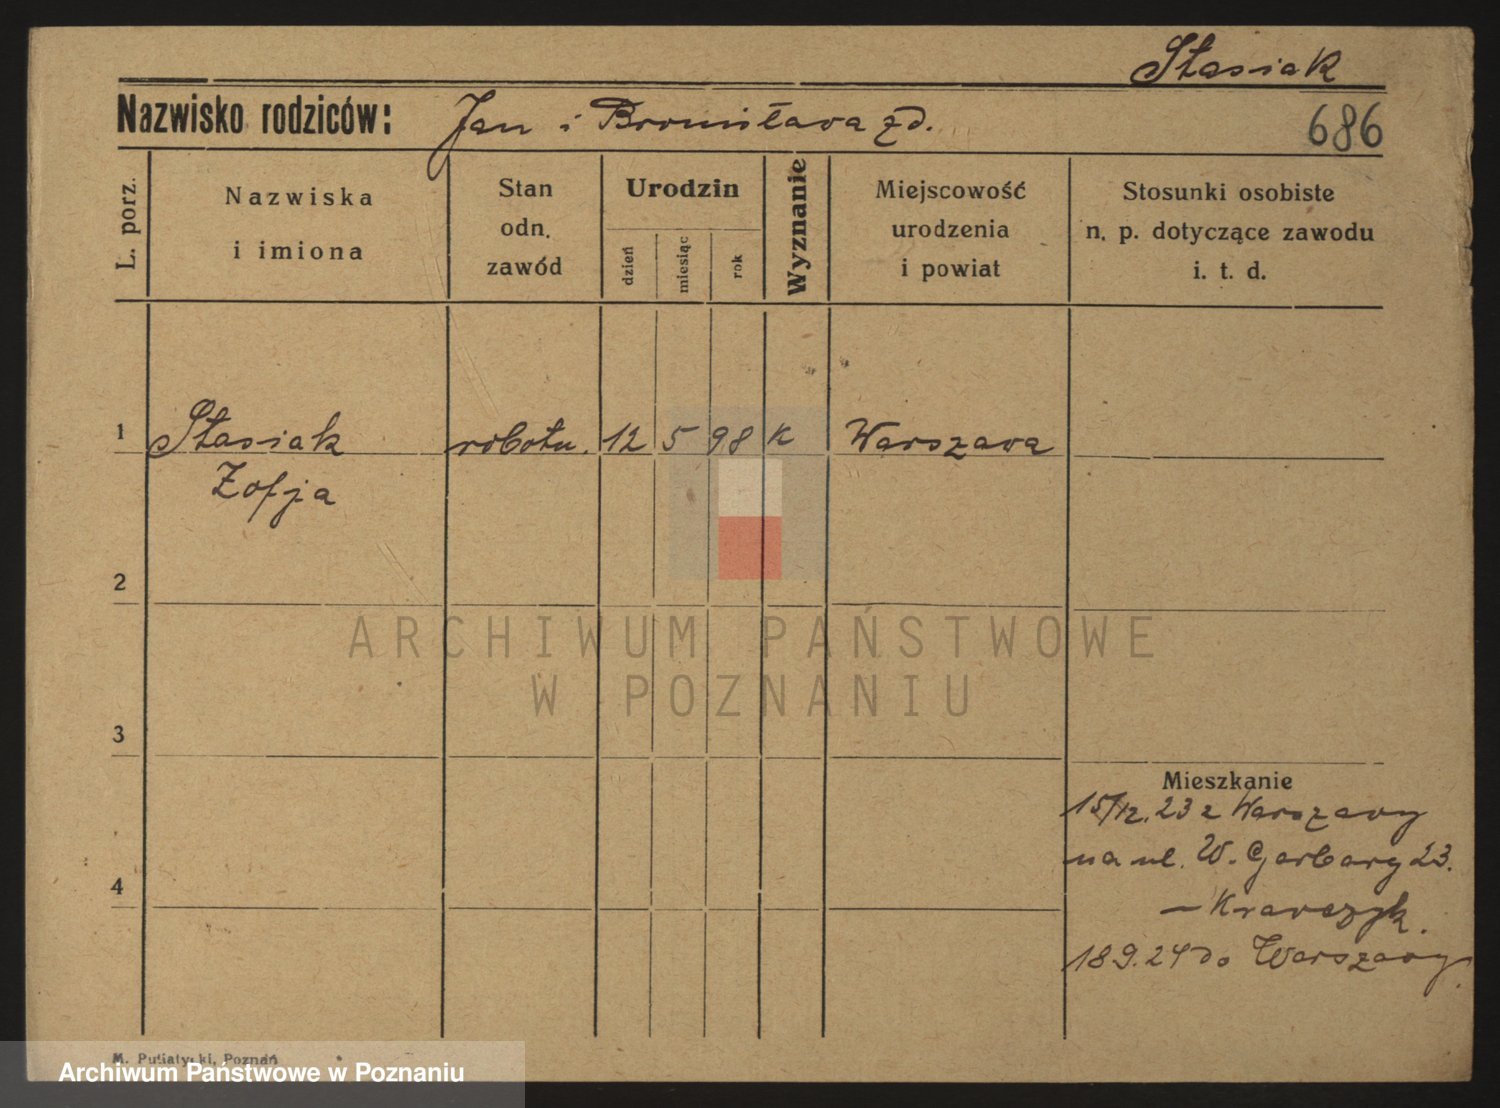 Stasiak
Nazwisko rodziców: Jan i Bronisława zd.
686
L. porz.
Nazwiska
i imiona
Stan
odn.
zawód
Urodzin
dzień
miesiąc
rok
Wyznanie
Miejscowość
urodzenia
i powiat
Stosunki osobiste
n. p. dotyczące zawodu
i. t. d.
1 Stasiak robotn. 12 5 98 K Warszawa
Zofja
2
ARCHIWUM PAŃSTWOWE
W POZNANIU
3
Mieszkanie
15/12.23 z Warszawy
na ul. W. Garbary 23.
4
– Krawczyk.
18 9.24 do Warszawy.
M. Putiatycki, Poznań
Archiwum Państwowe w Poznaniu